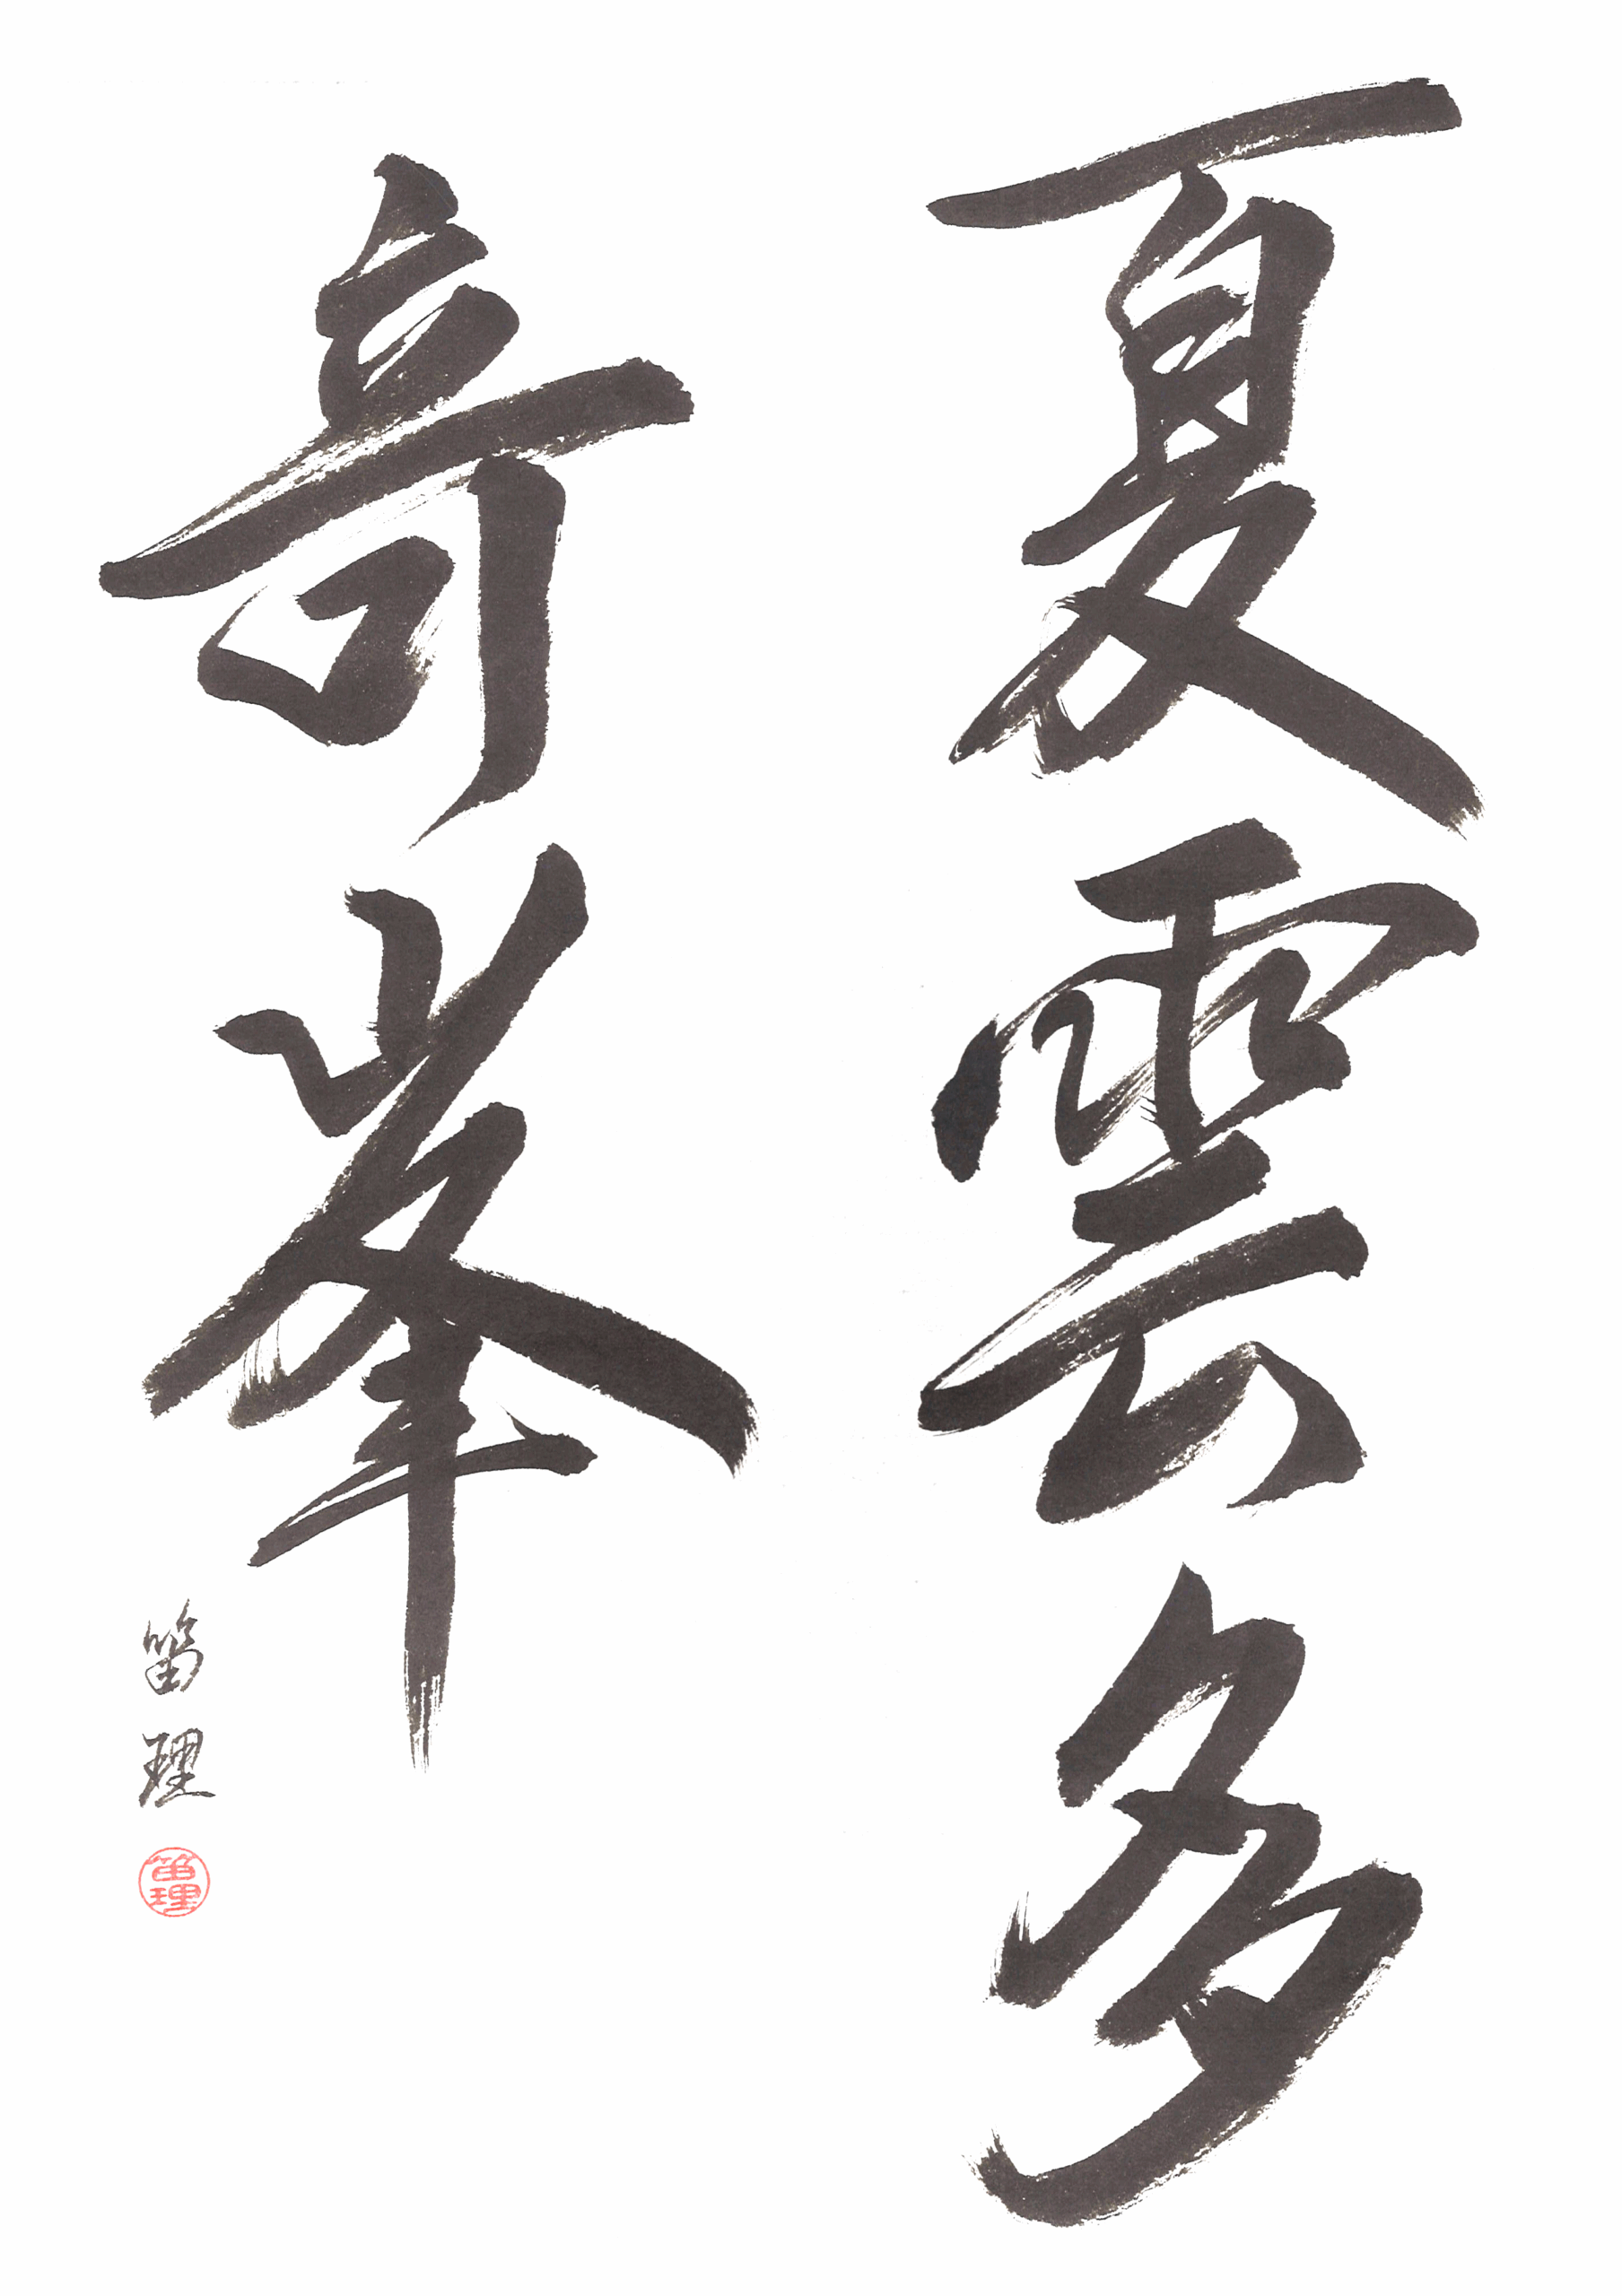 夏雲多
奇峯
笛理
笛理